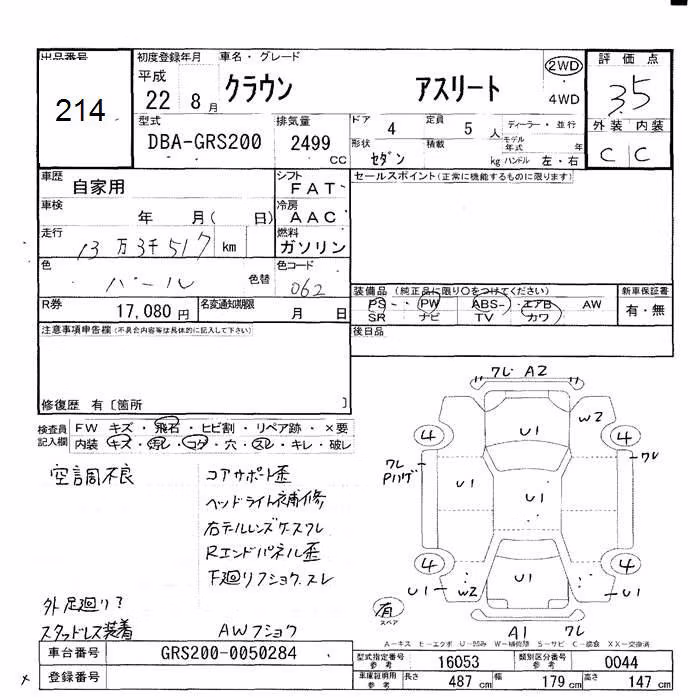 出品番号 214
初度登録年月 車名・グレード
平成 22 8月 クラウン アスリート 2WD 4WD
評価点 3.5
外装 内装
C C
型式 DBA-GRS200
排気量 2499 CC
ドア 4 定員 5 人 ディーラー・並行
形状 セダン 積載 kg モデル年式 年 ハンドル 左・右
車歴 自家用
シフト FAT
セールスポイント(正常に機能するものに限ります)
車検 年 月( 日)
冷房 AAC
走行 13万3千517 km
燃料 ガソリン
色 パール 色替
色コード 062
装備品 (純正品に限り○をつけてください) 新車保証書
PS PW ABS エアB AW 有・無
SR ナビ TV カワ
R券 17,080円 名変通知期限 月 日
後日品
注意事項申告欄(不具合内容等は具体的に記入して下さい)
修復歴 有〔箇所 〕
検査員記入欄 FW キズ・飛石・ヒビ割・リペア跡・×要
内装 キズ・汚レ・コゲ・穴・スレ・キレ・破レ
空調不良
コアサポート歪
ヘッドライト補修
右テルレンズケースワレ
Rエンドパネル歪
下廻リフショク、スレ
外 足廻り?
スタッドレス装着 AWフショク
ワレ A2
W2
U1
4 4
ワレ ワレ
Pハゲ
U1 U1 U1
4 4
U1 W2 U1 U1
有 スペア
A1 ワレ
A-キズ E-エクボ U-凹み W-補修跡 S-サビ C-腐食 XX-交換済
車台番号 GRS200-0050284
型式指定番号 参考 16053 類別区分番号 参考 0044
x 登録番号
車庫証明用 参考 長さ 487 cm 幅 179 cm 高さ 147 cm